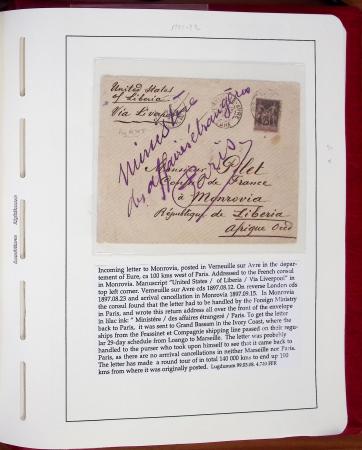 United States
of Liberia
Via Liverpool
Ministère
des affaires étrangères
Paris
Monsieur Pilet
Consul de France
à Monrovia
République de Liberia
Afrique Occid
Incoming letter to Monrovia, posted in Verneuille sur Avre in the depar-
tement of Eure, ca 100 kms west of Paris. Addressed to the French consul
in Monrovia. Manuscript "United States / of Liberia / Via Liverpool" in
top left corner. Verneuille sur Avre cds 1897.08.12. On reverse London cds
1897.08.23 and arrival cancellation in Monrovia 1897.09.15. In Monrovia
the consul found that the letter had to be handled by the Foreign Ministry
in Paris, and wrote this address all over the front of the envelope
in lilac ink: " Ministère / des affaires étrangéré / Paris. To get the letter
back to Paris, it was sent to Grand Bassam in the Ivory Coast, where the
ships from the Frassinet et Compagnie shipping line passed on their regu-
lar 29-day schedule from Loango to Marseille. The letter was probably
handled to the purser who took upon himself to see that it came back to
Paris, as there are no arrival cancellations in neither Marseille nor Paris.
The letter has made a round tour of in total 140 000 kms to end up 100
kms from where it was originally posted. Lugdunum 99.03.08. 4.710 FFR